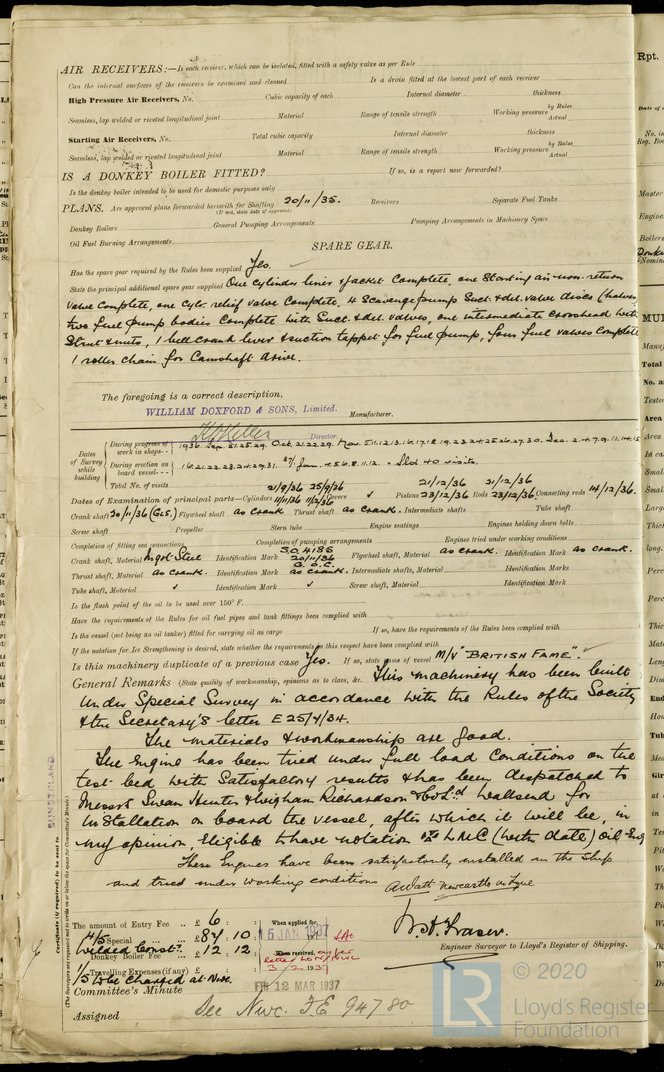 AIR RECEIVERS:—Is each receiver, which can be isolated, fitted with a safety valve as per Rule
Can the internal surfaces of the receivers be examined and cleaned Is a drain fitted at the lowest part of each receiver
High Pressure Air Receivers, No. Cubic capacity of each Internal diameter thickness
Seamless, lap welded or riveted longitudinal joint Material Range of tensile strength Working pressure by Rules Actual
Starting Air Receivers, No. Total cubic capacity Internal diameter thickness
Seamless, lap welded or riveted longitudinal joint Material Range of tensile strength Working pressure by Rules Actual
IS A DONKEY BOILER FITTED? If so, is a report now forwarded?
Is the donkey boiler intended to be used for domestic purposes only
PLANS. Are approved plans forwarded herewith for Shafting 20/11/35. Receivers Separate Fuel Tanks
(If not, state date of approval)
Donkey Boilers General Pumping Arrangements Pumping Arrangements in Machinery Space
Oil Fuel Burning Arrangements
SPARE GEAR.
Has the spare gear required by the Rules been supplied Yes.
State the principal additional spare gear supplied One cylinder liner & jacket complete, one Starting air non-return
valve complete, one cylr. relief valve complete, 4 Scavenge pump Suct. & del. valve discs (halves)
two fuel pump bodies complete with Suct. & del. valves, one intermediate crosshead with
Strut & nuts, 1 bell crank lever & suction tappet for fuel pump, four fuel valves complete
1 roller chain for Camshaft drive.
The foregoing is a correct description,
WILLIAM DOXFORD & SONS, Limited. Manufacturer.
Director
Dates of Survey while building
During progress of work in shops - - 1936 Sep. 21.25.29. Oct. 21.22.29. Nov. 5.11.12.13.16.17.18.19.23.24.25.26.27.30. Dec. 2.4.7.9.11.14.15
During erection on board vessel - - 16.21.22.23.24.29.31. 37/ Jan. 4.5.6.8.11.12. - Sld 40 visits.
Total No. of visits
Dates of Examination of principal parts—Cylinders 21/9/36 11/11/36 Covers 25/9/36 Pistons 21/12/36 23/12/36 Rods 21/12/36 23/12/36 Connecting rods 14/12/36.
Crank shaft 20/11/36 (GLS.) Flywheel shaft as Crank Thrust shaft as Crank. Intermediate shafts Tube shaft
Screw shaft Propeller Stern tube Engine seatings Engines holding down bolts
Completion of fitting sea connections Completion of pumping arrangements Engines tried under working conditions
Crank shaft, Material Ingot Steel Identification Mark S.O. 4185 20/11/36 G.O.C. Flywheel shaft, Material as Crank. Identification Mark as Crank.
Thrust shaft, Material as Crank. Identification Mark as Crank. Intermediate shafts, Material Identification Marks
Tube shaft, Material ✓ Identification Mark ✓ Screw shaft, Material Identification Mark
Is the flash point of the oil to be used over 150° F.
Have the requirements of the Rules for oil fuel pipes and tank fittings been complied with
Is the vessel (not being an oil tanker) fitted for carrying oil as cargo If so, have the requirements of the Rules been complied with
If the notation for Ice Strengthening is desired, state whether the requirements in this respect have been complied with
Is this machinery duplicate of a previous case Yes. If so, state name of vessel M/V "BRITISH FAME".
General Remarks (State quality of workmanship, opinions as to class, &c. This machinery has been built
under Special Survey in accordance with the Rules of the Society
& the Secretary's letter E 25/4/34.
The materials & workmanship are good.
The Engine has been tried under full load Conditions on the
test bed with Satisfactory results & has been despatched to
Messrs Swan Hunter & Wigham Richardson & Co Ltd Wallsend for
installation on board the vessel, after which it will be, in
my opinion, Eligible to have notation LMC (with date) Oil Eng
These Engines have been satisfactorily installed in the Ship
and tried under working conditions A Watt Newcastle on Tyne
The amount of Entry Fee .. £ 6 : :
4/5 Special £ 84 : 10 :
Welded Const. Donkey Boiler Fee £ 12 : 12 :
Travelling Expenses (if any) £ : :
1/5 to be charged at Nwc.
When applied for,
15 JAN 1937
When received,
3/2/1937
W. H. Fraser.
Engineer Surveyor to Lloyd's Register of Shipping.
Committee's Minute FRI 12 MAR 1937
Assigned See Nwc. F.E 94780
SUNDERLAND
© 2020
Lloyd's Register
Foundation
LR
Rpt.